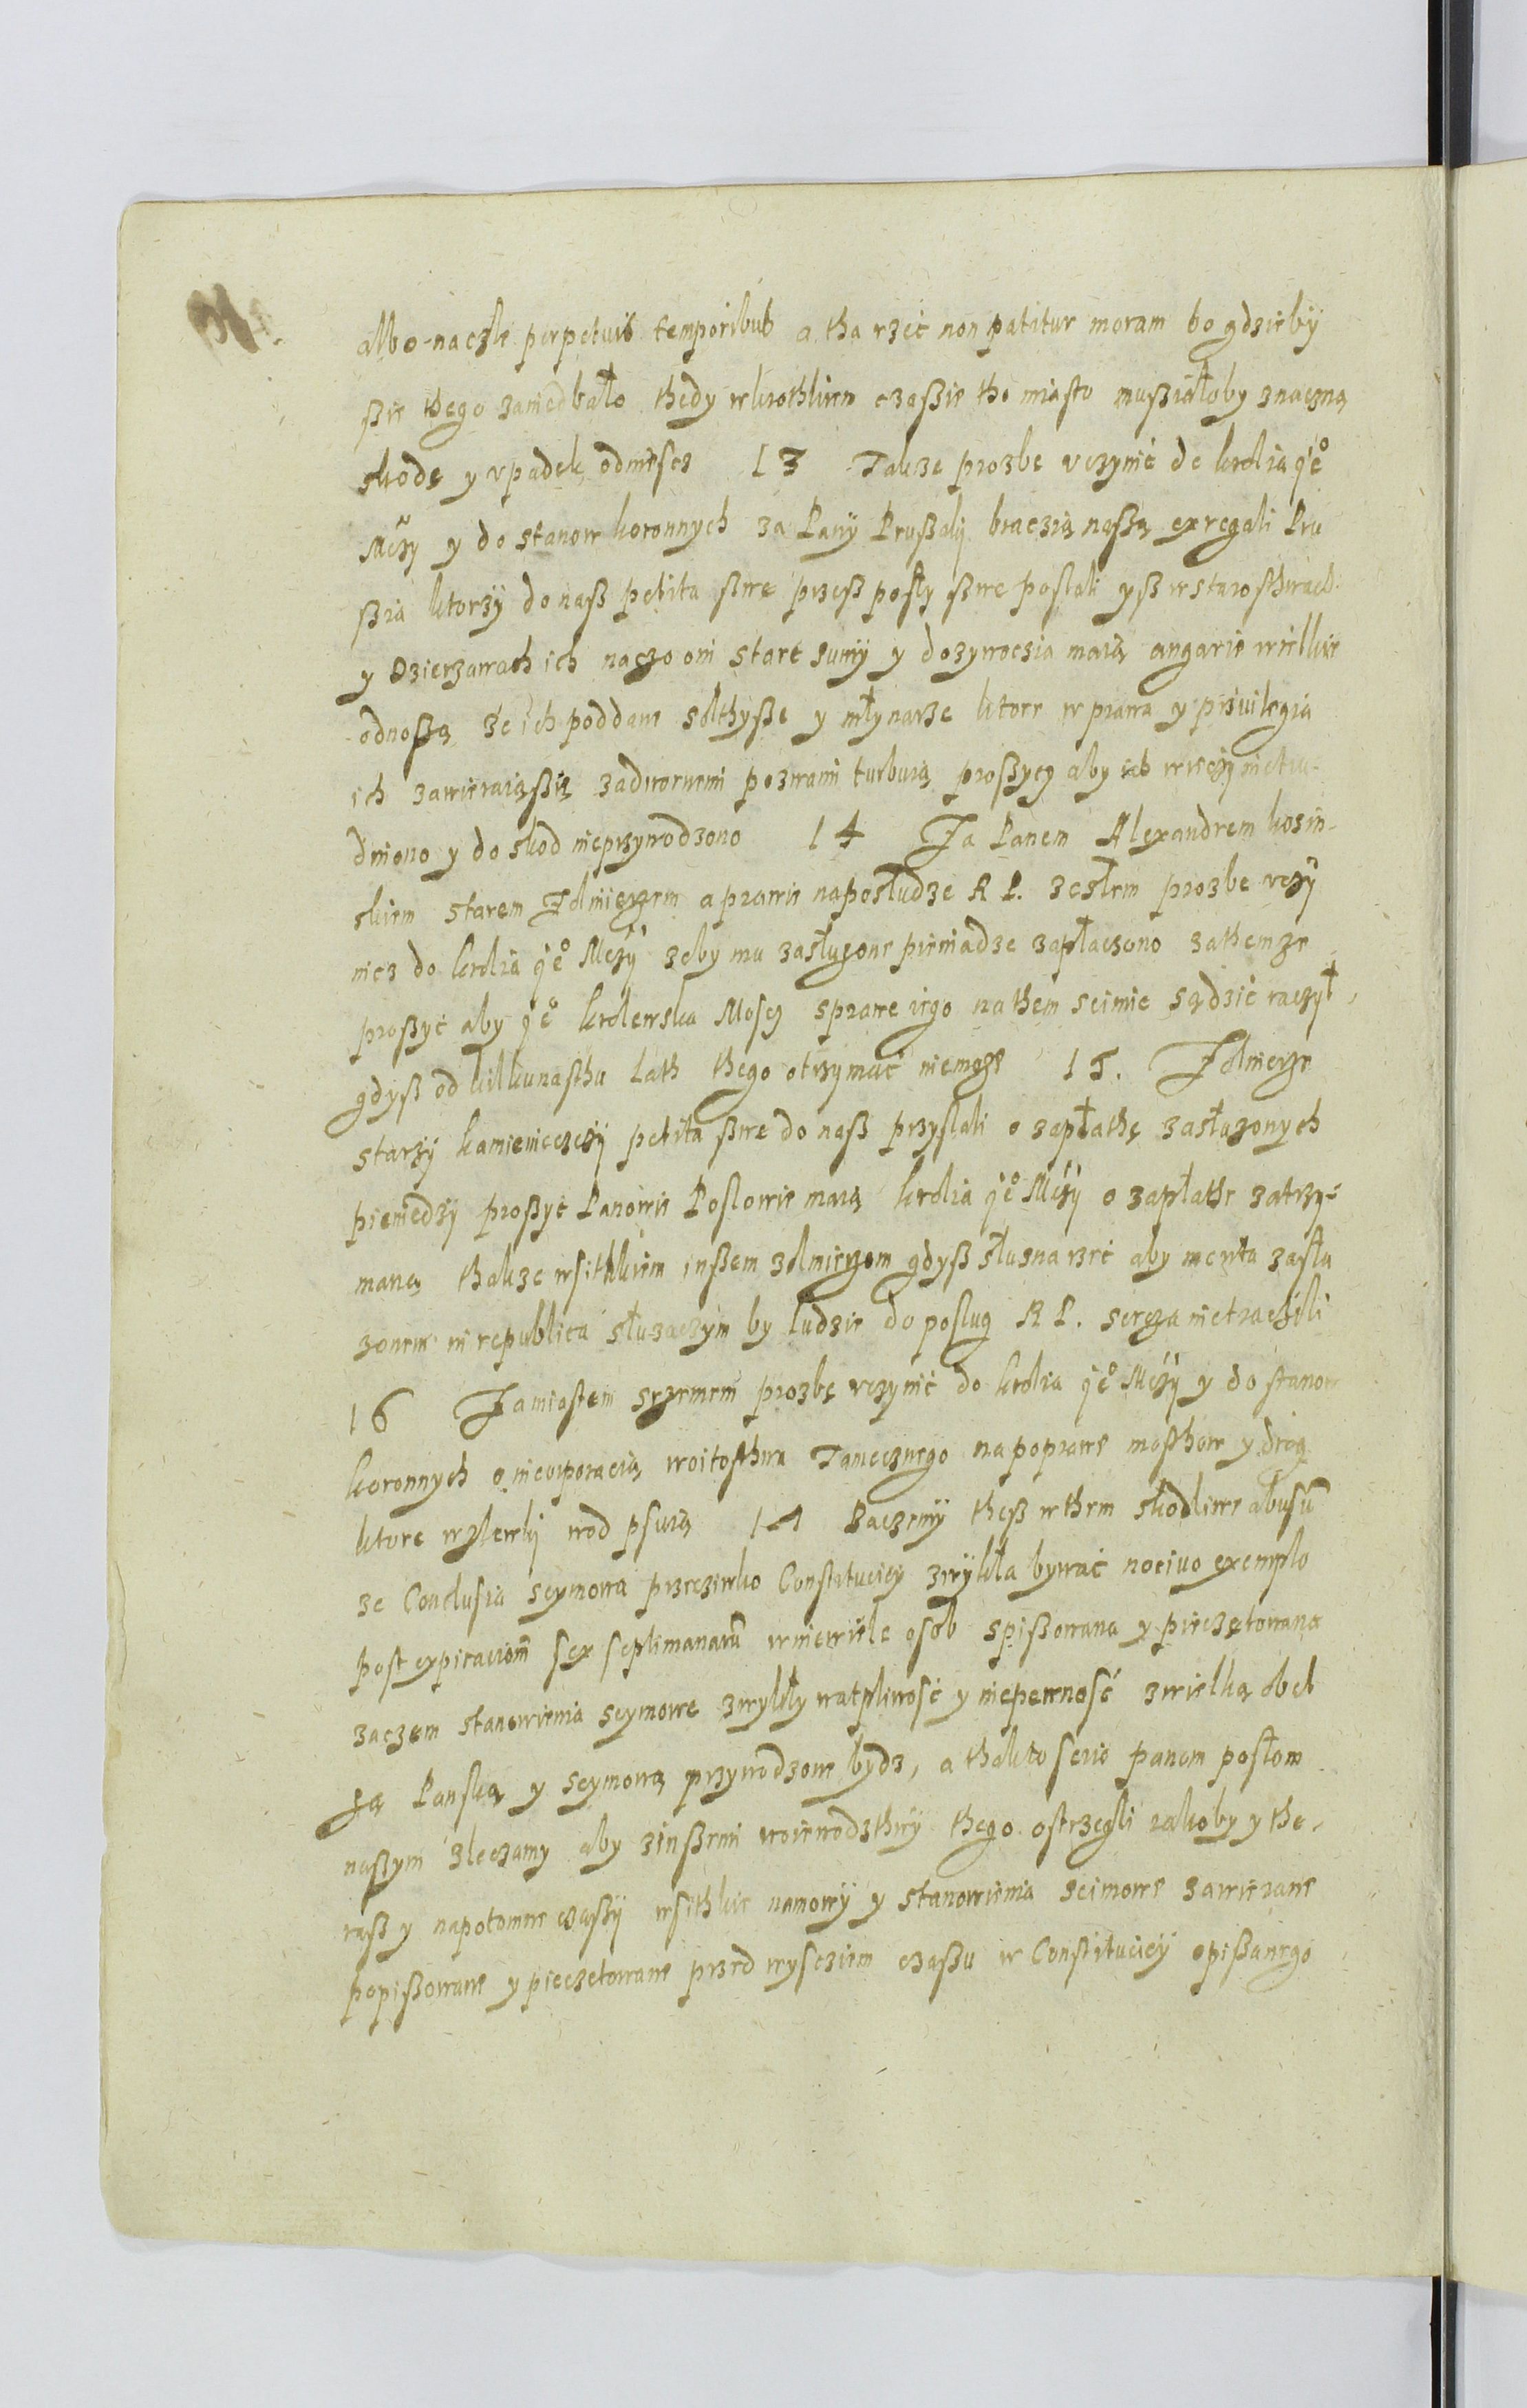 albo naczle perpetuis temporibus a tha rzec non patitur moram bo gdzieby
ßie thego zaniedbało thedy w krothkiem czaßie tho miasto mußiałoby znaczną
skodę y vpadek odniescz 13 Takze prozbe vczynić do krolia jeo
Mczy y do stanow koronnych za Pany Prußaky braczią naßą ex regali Pru
ßia ktorzy do naß petita swe przeß posły swe posłali yß w starosthwach
y Dzierzawach ich naczo oni stare sumy y dozywoczia maią angarie wielkie
odnoßą ze ich poddane solthyße y młynarze ktore w prawa y privilegia
ich zawieraią ßię zadwornemi pozwami turbuią proßycz aby ich wieczy nietru-
dniono y do skod nieprzywodzono 14 Za Panem Alexandrem kosin-
skiem starem Zołnierzem a prawie na posłudze R P. zeszłem prozbe vczy
nicz do krolia jeo Mczy zeby mu zasłuzone pieniadze zapłaczono zathemze
proßyć aby jeo krolewska Moscz sprawe iego na them seimie sądzić raczył,
gdyß od kilkunasthu lath thego otrzymać niemoze 15. Zołnierze
starzy kamienieczczy petita swe do naß przysłali o zapłathę zasłuzonych
pieniedzy proßyć Panowie Posłowie maią krolia jeo Mczy o zapłathe zatrzy-
maną thakze wsithkiem inßem zołnierzom gdyß słusna rzec aby merita zasłu
zonem in republica słuzaczym by ludzie do posług R P. sercza nietraczili
16 Za miastem Srzemem prozbę vczynić do krolia jeo Mczy y do stanow
koronnych o incorporacią woitosthwa Tamecznego na poprawe mosthow y drog
ktore wzlewki wod psuią 17 Baczemy theß w them skodliwe abusum
ze Conclusia seymowa przecziwko Constituciey zwykła bywać nocivo exemplo
post expiracionem sex septimanarum w niewiele osob spißowana y pieczętowana
zaczem stanowienia seymowe zwykły wątpliwość y niepewność zwielką obel
zą Panską y seymową przywodzone bydz, a thakto serio panom posłom
naßym zleczamy aby zinßemi woiewodzthwy thego ostrzegli iakoby y the-
raß y napotomne czaßy wsithkie namowy y stanowienia seimowe zawierane
popißowane y pieczetowane przed wysciem czaßu w Constituciey opißanego